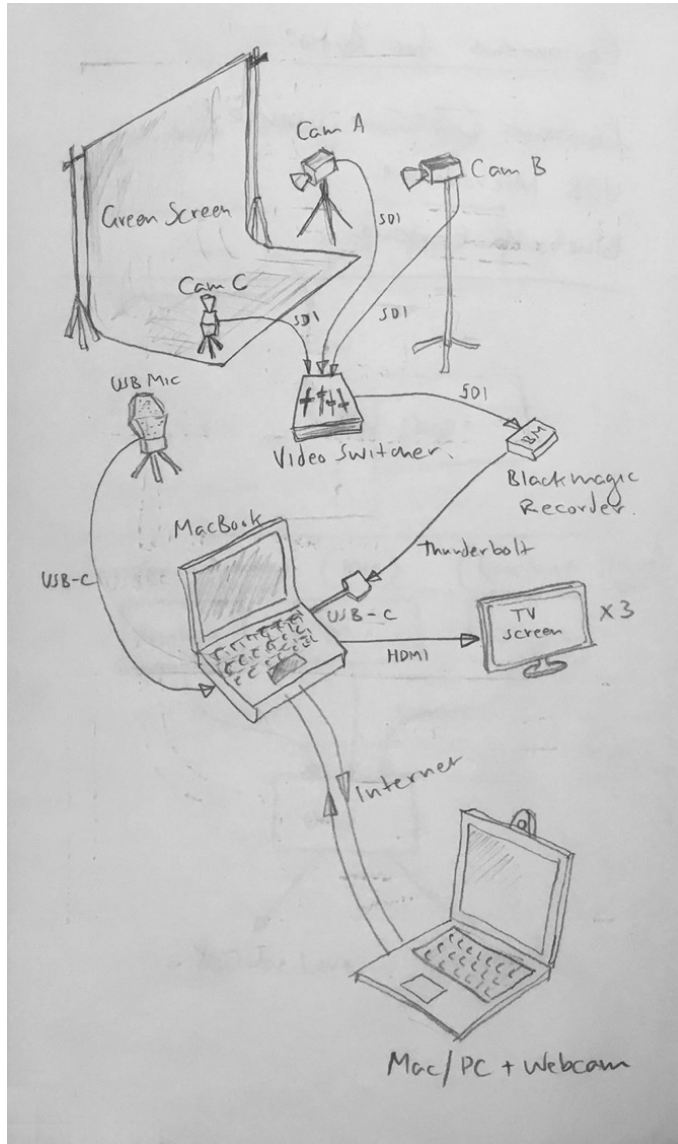 Cam A
Cam B
Green Screen
SDI
Cam C
SDI
SDI
USB Mic
SDI
BM
Video Switcher.
Blackmagic
Recorder.
MacBook
Thunderbolt
USB-C
USB-C
TV
Screen
x3
HDMI
Internet
Mac/PC + Webcam